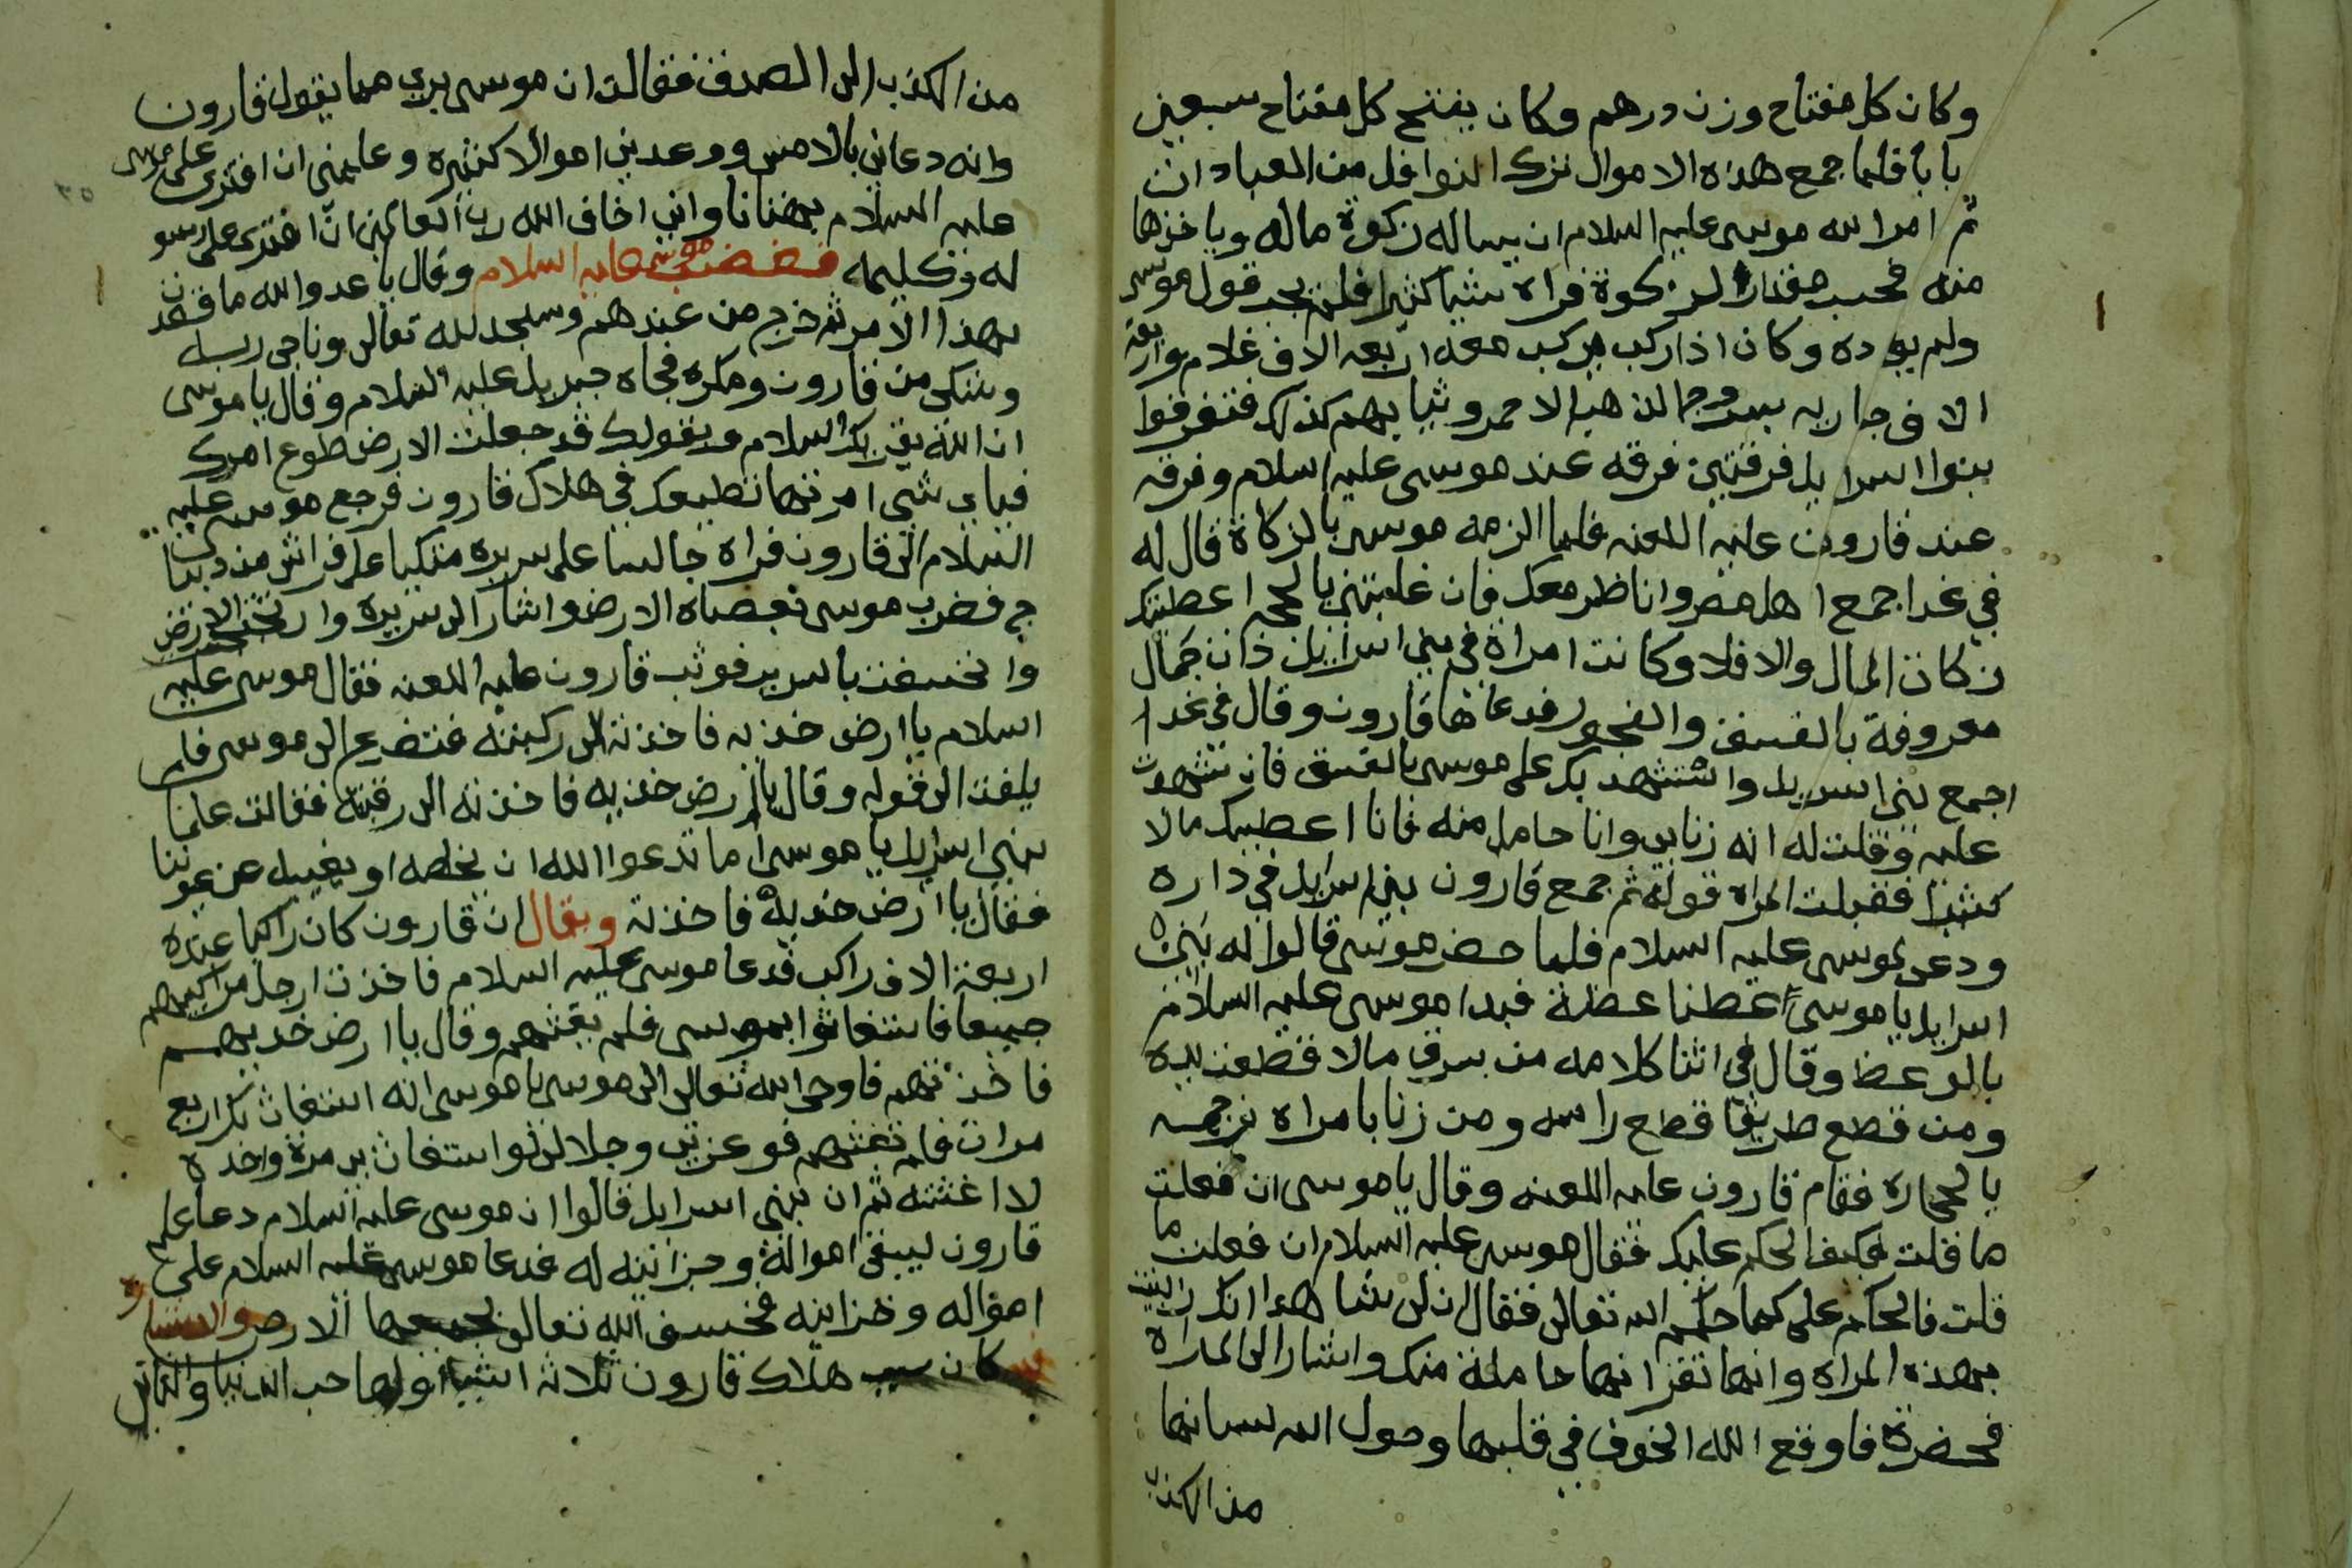 وكان كل مفتاح وزن درهم وكان يفتح كل مفتاح سبعين
بابا فلما جمع هذه الاموال ترك النوافل من العبادات
ثم امر الله موسى عليه السلام ان يساله زكوة ماله وياخذها
منه فحسب مقدار الزكوة فراه شيا كثيرا فلم يجب قول موسى
ولم يوده وكان اذا ركب يركب معه اربعه الاف غلام واربعة
الاف جاريه بسروج الذهب الاحمر وثيابهم كذلك فتفرقوا
بنوا اسرايل فرقتين فرقه عند موسى عليه السلام وفرقه
عند قارون عليه اللعنه فلما الزمه موسى بالزكاة قال له
في غدا جمع اهل مصر واناظر معك فان غلبتني بالحجه اعطيتك
زكاة المال والا فلا وكانت امراة في بني اسرايل ذات جمال
معروفة بالفسق والفجور فدعاها قارون وقال في غدا
اجمع بني اسرايل واستشهد بك على موسى بالفسق فان تشهدت
عليه وقلت له انه زنا بي وانا حامل منه فانا اعطيك مالا
كثيرا فقبلت المراه قوله ثم جمع قارون بني اسرايل في داره
ودعى موسى عليه السلام فلما حضر موسى قالوا له بني
اسرايل يا موسى اعظنا عظة فبدا موسى عليه السلام
بالوعظ وقال في اثنا كلامه من سرق مالا قطعت يده
ومن قطع طريقا قطع راسه ومن زنا بامراه نرجمه
بالحجاره فقام قارون عليه اللعنه وقال يا موسى ان فعلت
ما قلت فكيف الحكم عليك فقال موسى عليه السلام ان فعلت ما
قلت فالحكم علي كما حكم الله تعالى فقال ان لي شاهدا انك زنيت
بهذه المراه وانها تقر انها حاملة منك واشار الى المراه
فحضرة فاوقع الله الخوف في قلبها وحول الله لسانها
من الكذب
من الكذب الى الصدق فقالت ان موسى بري مما يقول قارون
وانه دعاني بالامس ووعدني اموالا كثيره وعلمني ان افترى على موسى
عليه السلام بهتانا واني اخاف الله رب العالمين ان افترى على رسو
له وكليمه فغضب موسى عليه السلام وقال يا عدو الله ما قصدت
بهذا الامر ثم خرج من عندهم وسجد لله تعالى وناجى ربه
وشكى من قارون ومكره فجاه جبريل عليه السلام وقال يا موسى
ان الله يقريك السلام ويقول لك قد جعلت الارض طوع امرك
فباي شي امرتها تطيعك في هلاك قارون فرجع موسى عليه
السلام الى قارون فراه جالسا على سريره متكيا على فراش من ديبا
ج فضرب موسى بعصاه الارض واشار الى سريره وارتجت الارض
وانخسفت بالسرير فوثب قارون عليه اللعنه فقال موسى عليه
السلام يا ارض خذيه فاخذته الى ركبتيه فتضرع الى موسى فلم
يلفت الى قوله وقال يا ارض خذيه فاخذته الى رقبته فقالت علما
بني اسرايل يا موسى اما تدعوا الله ان يخلصه او يغيبه عن عيوننا
فقال يا ارض خذيه فاخذته ويقال ان قارون كان راكبا عنده
اربعة الاف راكب فدعا موسى عليه السلام فاخذت ارجل مراكبهم
جميعا فاستغاثوا بموسى فلم يغثهم وقال يا ارض خذيهم
فاخذتهم فاوحى الله تعالى الى موسى يا موسى انه استغاث بك اربع
مرات فلم تغثهم فوعزتي وجلالي لو استغاث بي مرة واحده
لا اغثته ثم ان بني اسرايل قالوا ان موسى عليه السلام دعا على
قارون ليبقى امواله وخزاينه له فدعا موسى عليه السلام على
امواله وخزاينه فخسف الله تعالى بجميعها الارض
كان سبب هلاك قارون ثلاثه اشيا اولها حب الدنيا والثاني